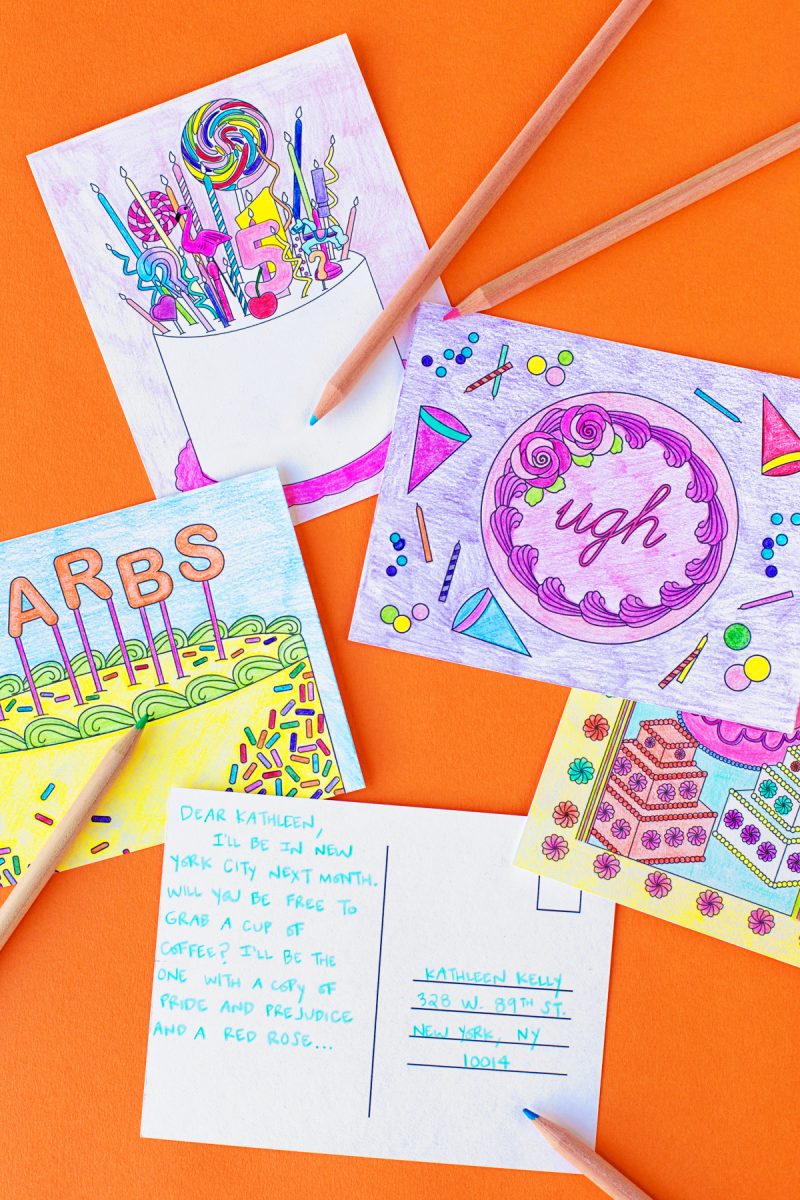 5
?
ugh
ARBS
DEAR KATHLEEN,
I'LL BE IN NEW
YORK CITY NEXT MONTH.
WILL YOU BE FREE TO
GRAB A CUP OF
COFFEE? I'LL BE THE
ONE WITH A COPY OF
PRIDE AND PREJUDICE
AND A RED ROSE...
KATHLEEN KELLY
328 W. 89TH ST.
NEW YORK, NY
10014